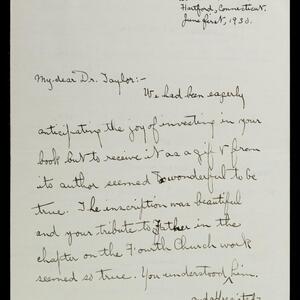 Hartford, Connecticut.
June first, 1930.
My dear Dr. Taylor:-
We had been eagerly
anticipating the joy of investing in your
book but to receive it as a gift & from
its author seemed too wonderful to be
true. The inscription was beautiful
and your tribute to Father in the
chapter on the Fourth Church work
seemed so true. You understood him.